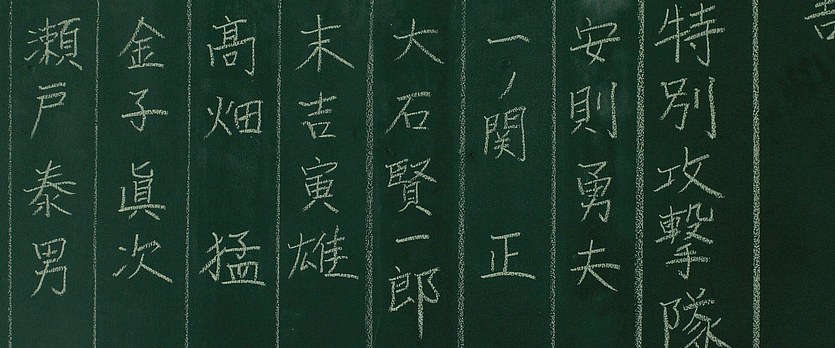 特別攻撃隊
安則勇夫
一ノ関正
大石賢一郎
末吉寅雄
高畑猛
金子眞次
瀬戸泰男